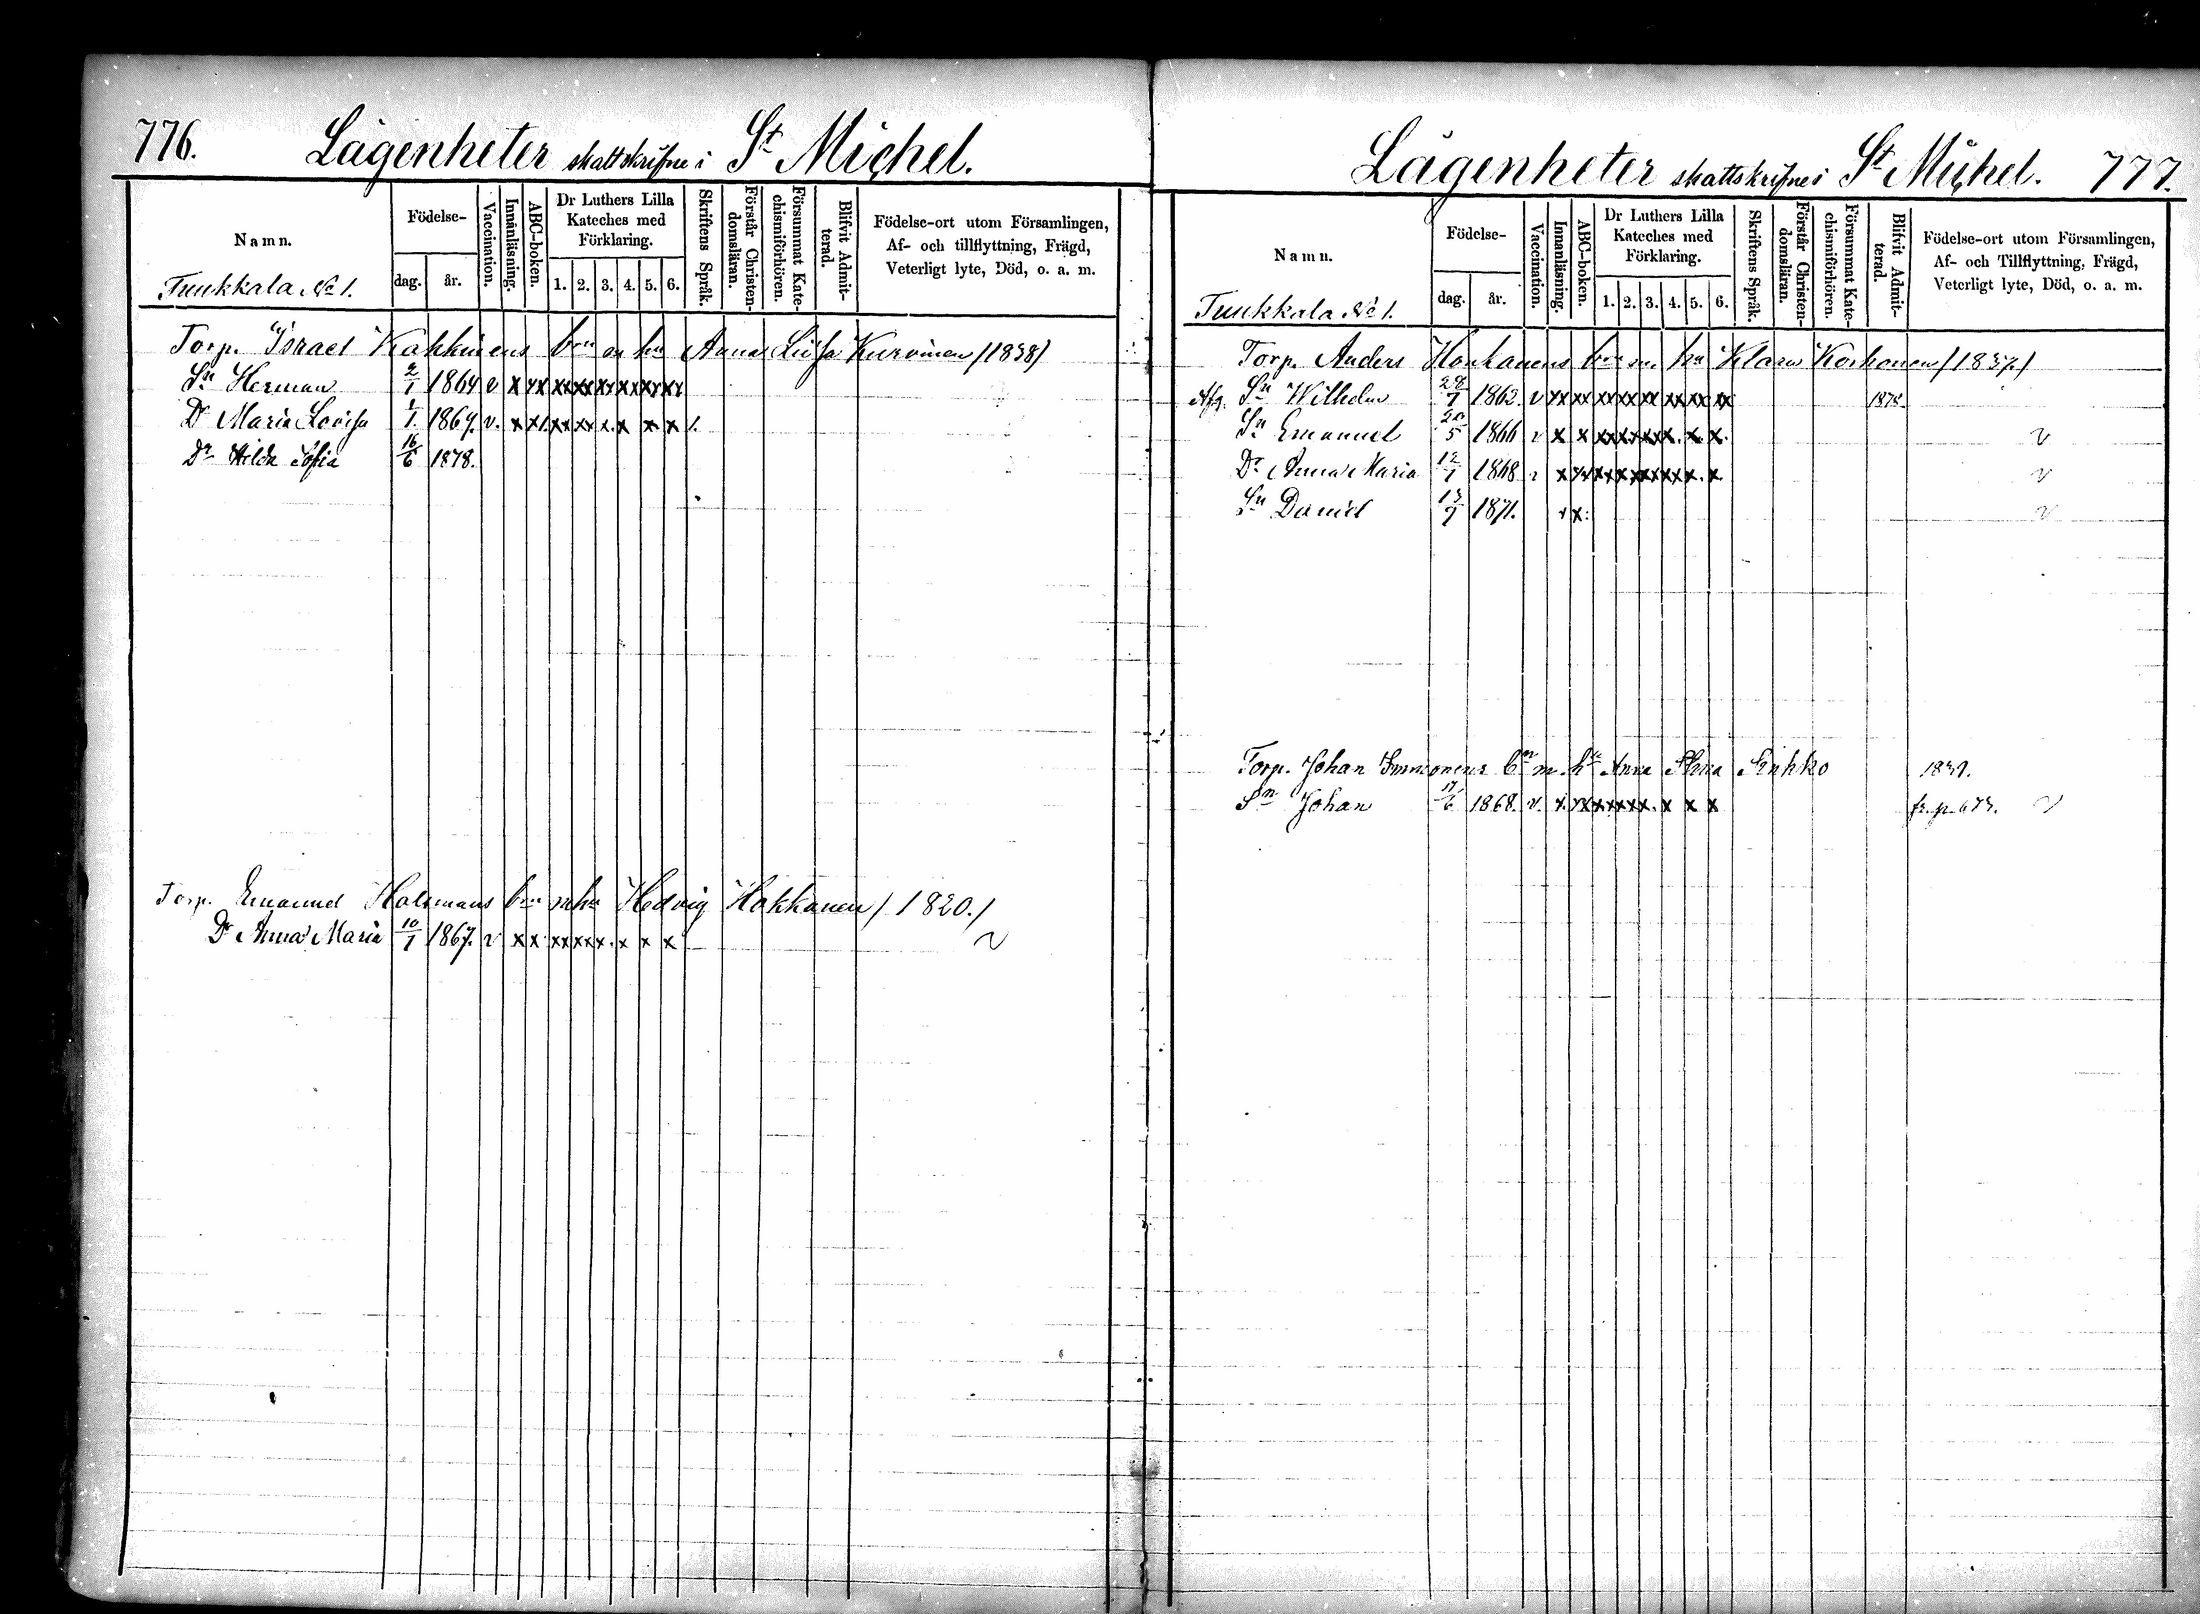 776. Lägenheter skattskrifne i St Michel.
Namn.
Födelse-
dag.
år.
Vaccination.
Innanläsning.
ABC-boken.
Dr Luthers Lilla Kateches med Förklaring.
1. 2. 3. 4. 5. 6.
Skriftens Språk.
Förstår Christen-domsläran.
Försummat Kate-chismiförhören.
Blifvit Admit-terad.
Födelse-ort utom Församlingen,
Af- och tillflyttning, Frägd,
Veterligt lyte, Död, o. a. m.
Tuukkala No 1.
Torp. Israel Kakkinens brn m hu Anna Liisa Kurvinen (1838)
Sn Herman 2/1 1864 v x xx xx xx xx xx xx xx
Dr Maria Lovisa 1867. v. x xx xx xx x. x x x
Dr Hilda Sofia 16/6 1878.
Torp. Emanuel Halsmans brn m hu Hedvig Hakkanen / 1820./
Dr Anna Maria 10/1 1867. v x x xx xx x. x x x v
Lägenheter skattskrifne i St Michel. 777.
Namn.
Födelse-
dag.
år.
Vaccination.
Innanläsning.
ABC-boken.
Dr Luthers Lilla Kateches med Förklaring.
1. 2. 3. 4. 5. 6.
Skriftens Språk.
Förstår Christen-domsläran.
Försummat Kate-chismiförhören.
Blifvit Admit-terad.
Födelse-ort utom Församlingen,
Af- och Tillflyttning, Frägd,
Veterligt lyte, Död, o. a. m.
Tuukkala No 1.
Torp. Anders Honkanens brn m. hu Klara Korhonen / 1837./
Afg. Sn Wilhelm 28/7 1862. v xx xx xx xx xx xx xx xx 1878.
Sn Emanuel 20/5 1866 v x x xx xx xx x. x. x. v
Dr Anna Maria 12/1 1868 v x xx xx xx xx xx x. x. v
Sn Daniel 13/9 1871. v x. v
Torp. Johan Immonens brn m. hu Anna Stina Sinkko 1839.
Sn Johan 17/6 1868. v. x. xx xx xx x. x x x fr. p. 673. v